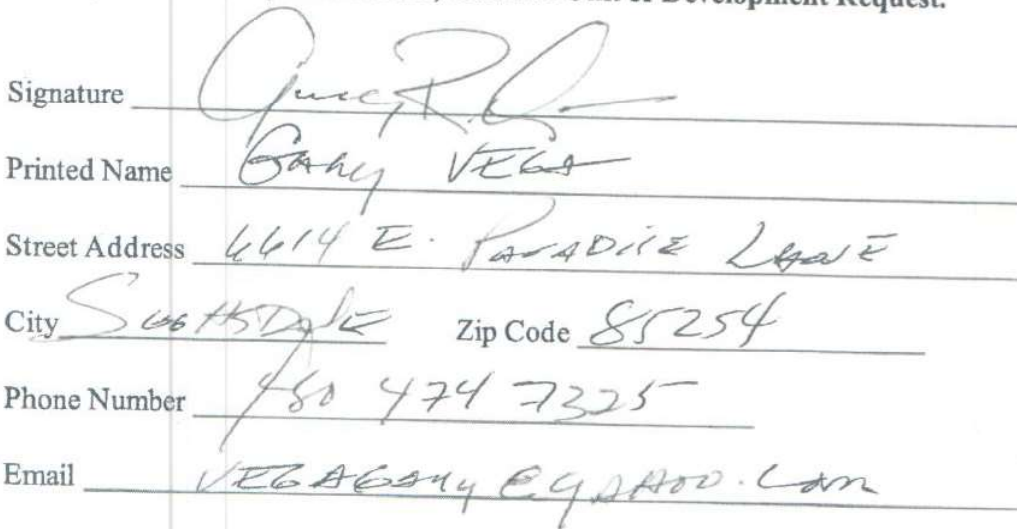 Development Request.
Signature
Printed Name Gary VEGA
Street Address 6614 E. PARADISE LANE
City ScottsDale Zip Code 85254
Phone Number 480 474 7325
Email VEGAGARY@YAHOO.Com